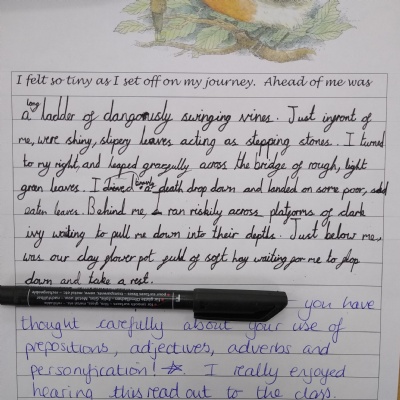 I felt so tiny as I set off on my journey. Ahead of me was
a long ladder of dangerously swinging vines. Just infront of
me, were shiny, slipery leaves acting as stepping stones. I turned
to my right, and leaped gracefully across the bridge of rough, light
green leaves. I dived bravely a death drop down and landed on some poor,
eaten leaves. Behind me, I ran riskily across platforms of dark
ivy waiting to pull me down into their depths. Just below me,
was our clay flower pot full of soft hay waiting for me to plop
down and take a rest.
you have
thought carefully about your use of
prepositions, adjectives, adverbs and
personyfication! I really enjoyed
hearing this read out to the class.